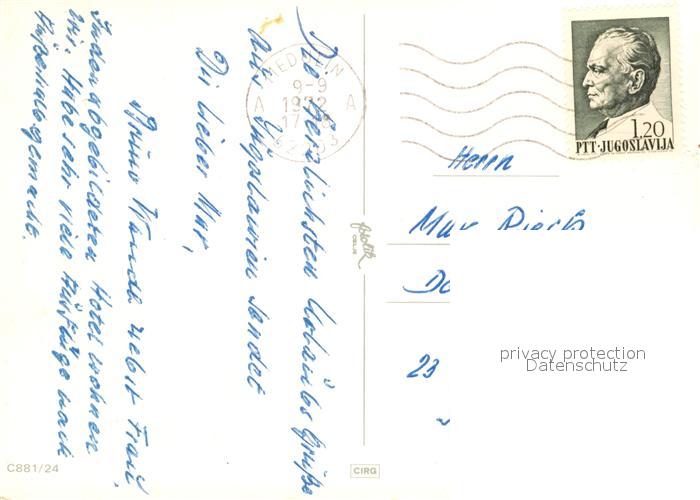 Die herzlichsten Urlaubsgrüße
Aus Jugoslavien sendet
Dir lieber Max,
Bruno Wande nebst Frau,
In den abgebildeten Hotel wohnen
wir. Habe sehr viele Ausflüge nach
Außerhalb gemacht.
MEDULIN
9-9
1972
17-18
A A
52203
1.20
PTT·JUGOSLAVIJA
Herrn
Max
23
privacy protection
Datenschutz
C881/24
CIRG